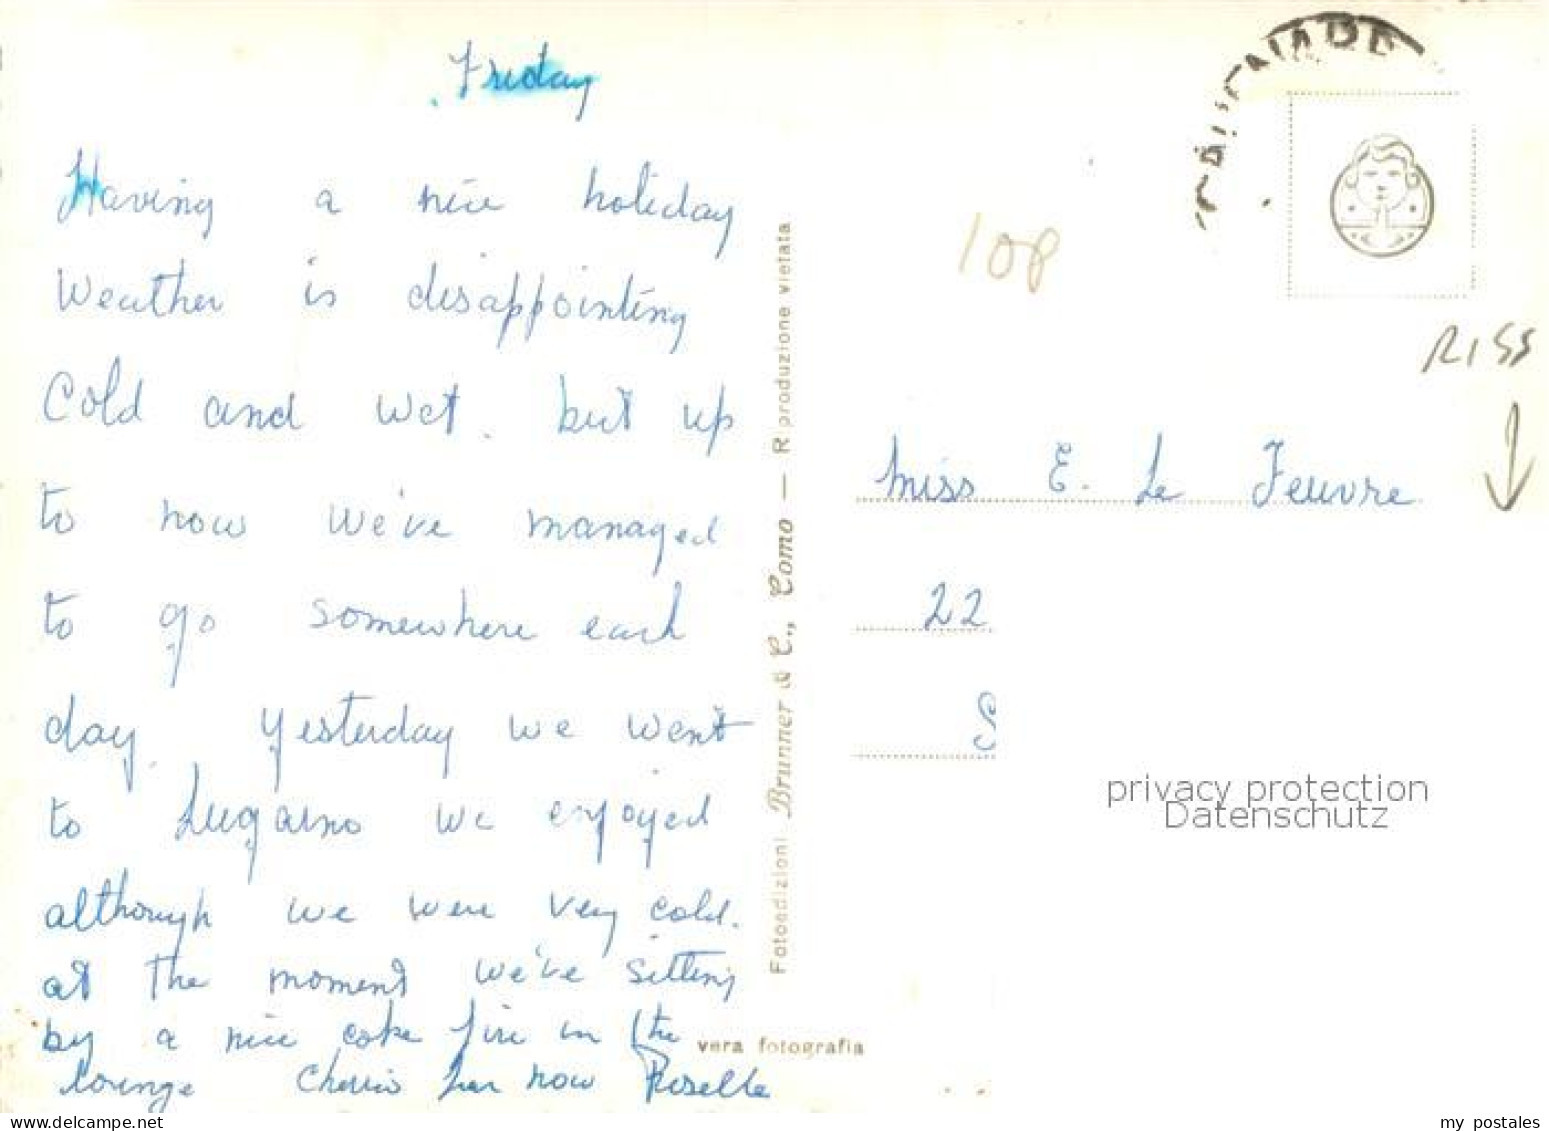 Friday
Having a nice holiday
Weather is disappointing
Cold and wet. but up
to now we've managed
to go somewhere each
day. Yesterday we went
to Lugarno we enjoyed
although we were very cold.
at the moment we've sitting
by a nice coke fire in the
lounge Cherrio for now Roselle
Fotoedizioni Brunner & C., Como — Riproduzione vietata
vera fotografia
108
RISS
Miss E. Le Feuvre
22
S
privacy protection
Datenschutz
my postales